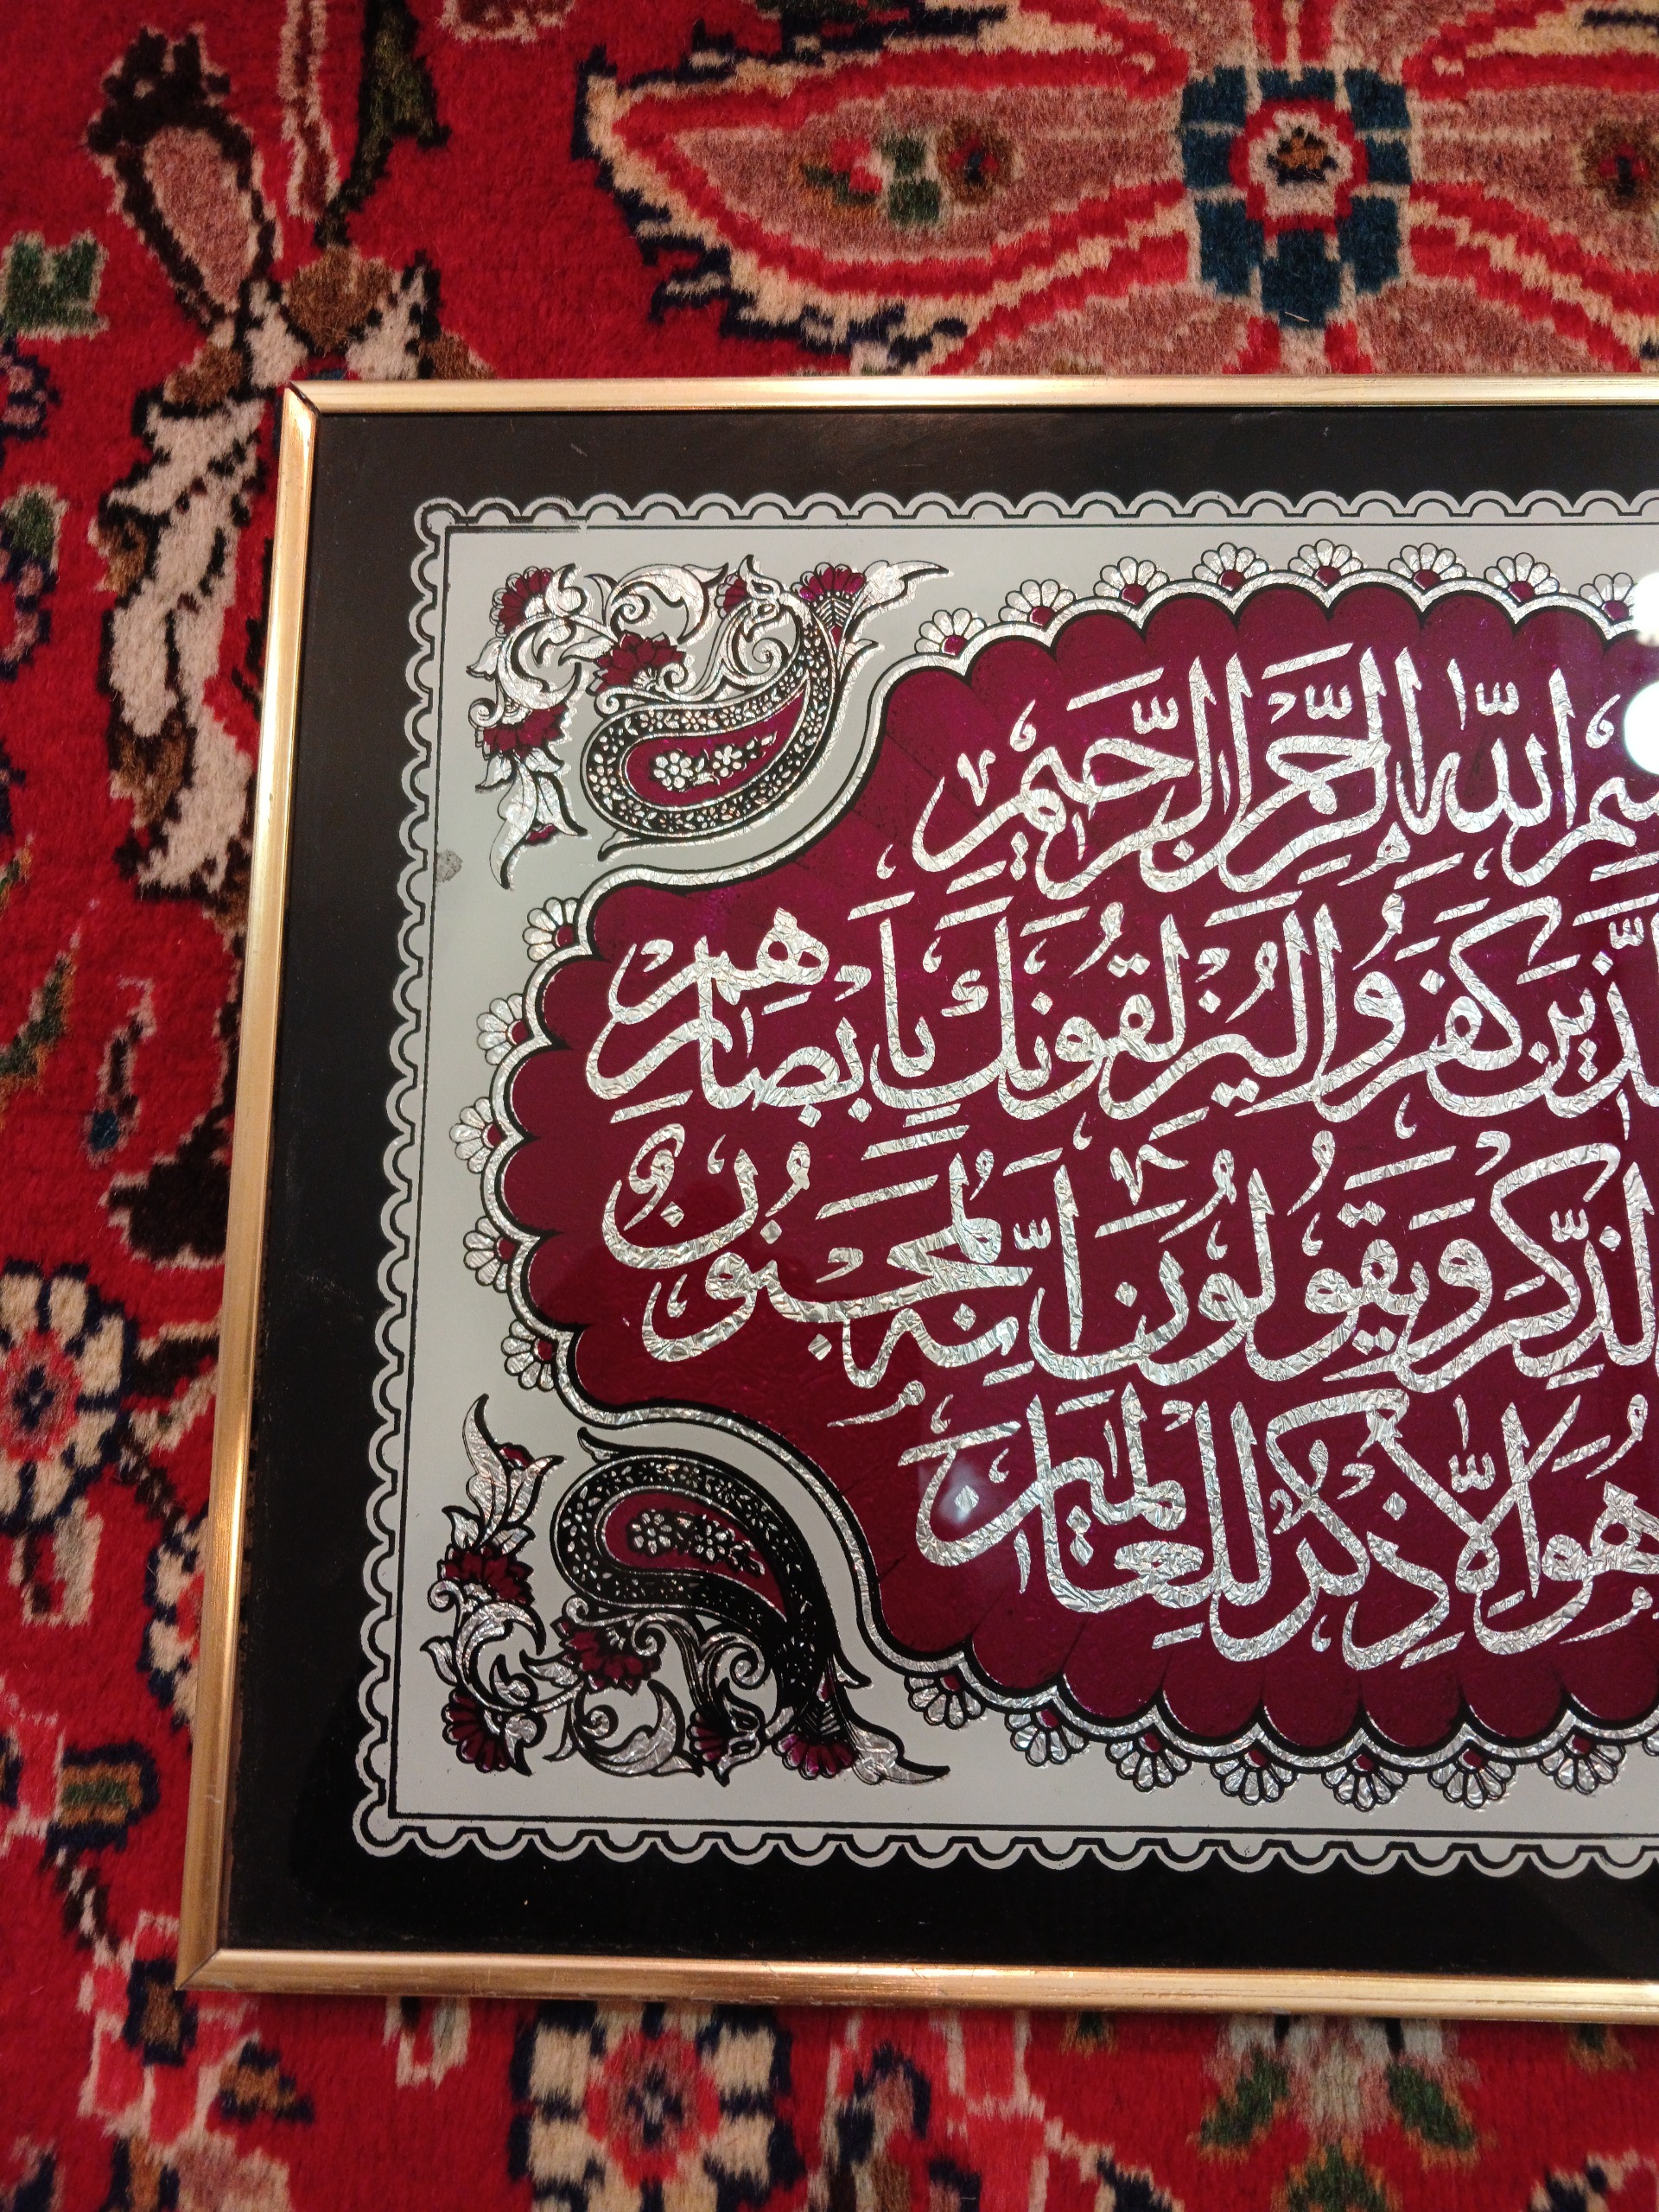 بِسْمِ اللهِ الرَّحْمٰنِ الرَّحِيْمِ
الَّذِيْنَ كَفَرُوا لَيُزْلِقُوْنَكَ بِاَبْصَارِهِمْ
الذِّكْرَ وَيَقُوْلُوْنَ اِنَّهُ لَمَجْنُوْنٌ وَ
هُوَ اِلَّا ذِكْرٌ لِلْعَالَمِيْنَ